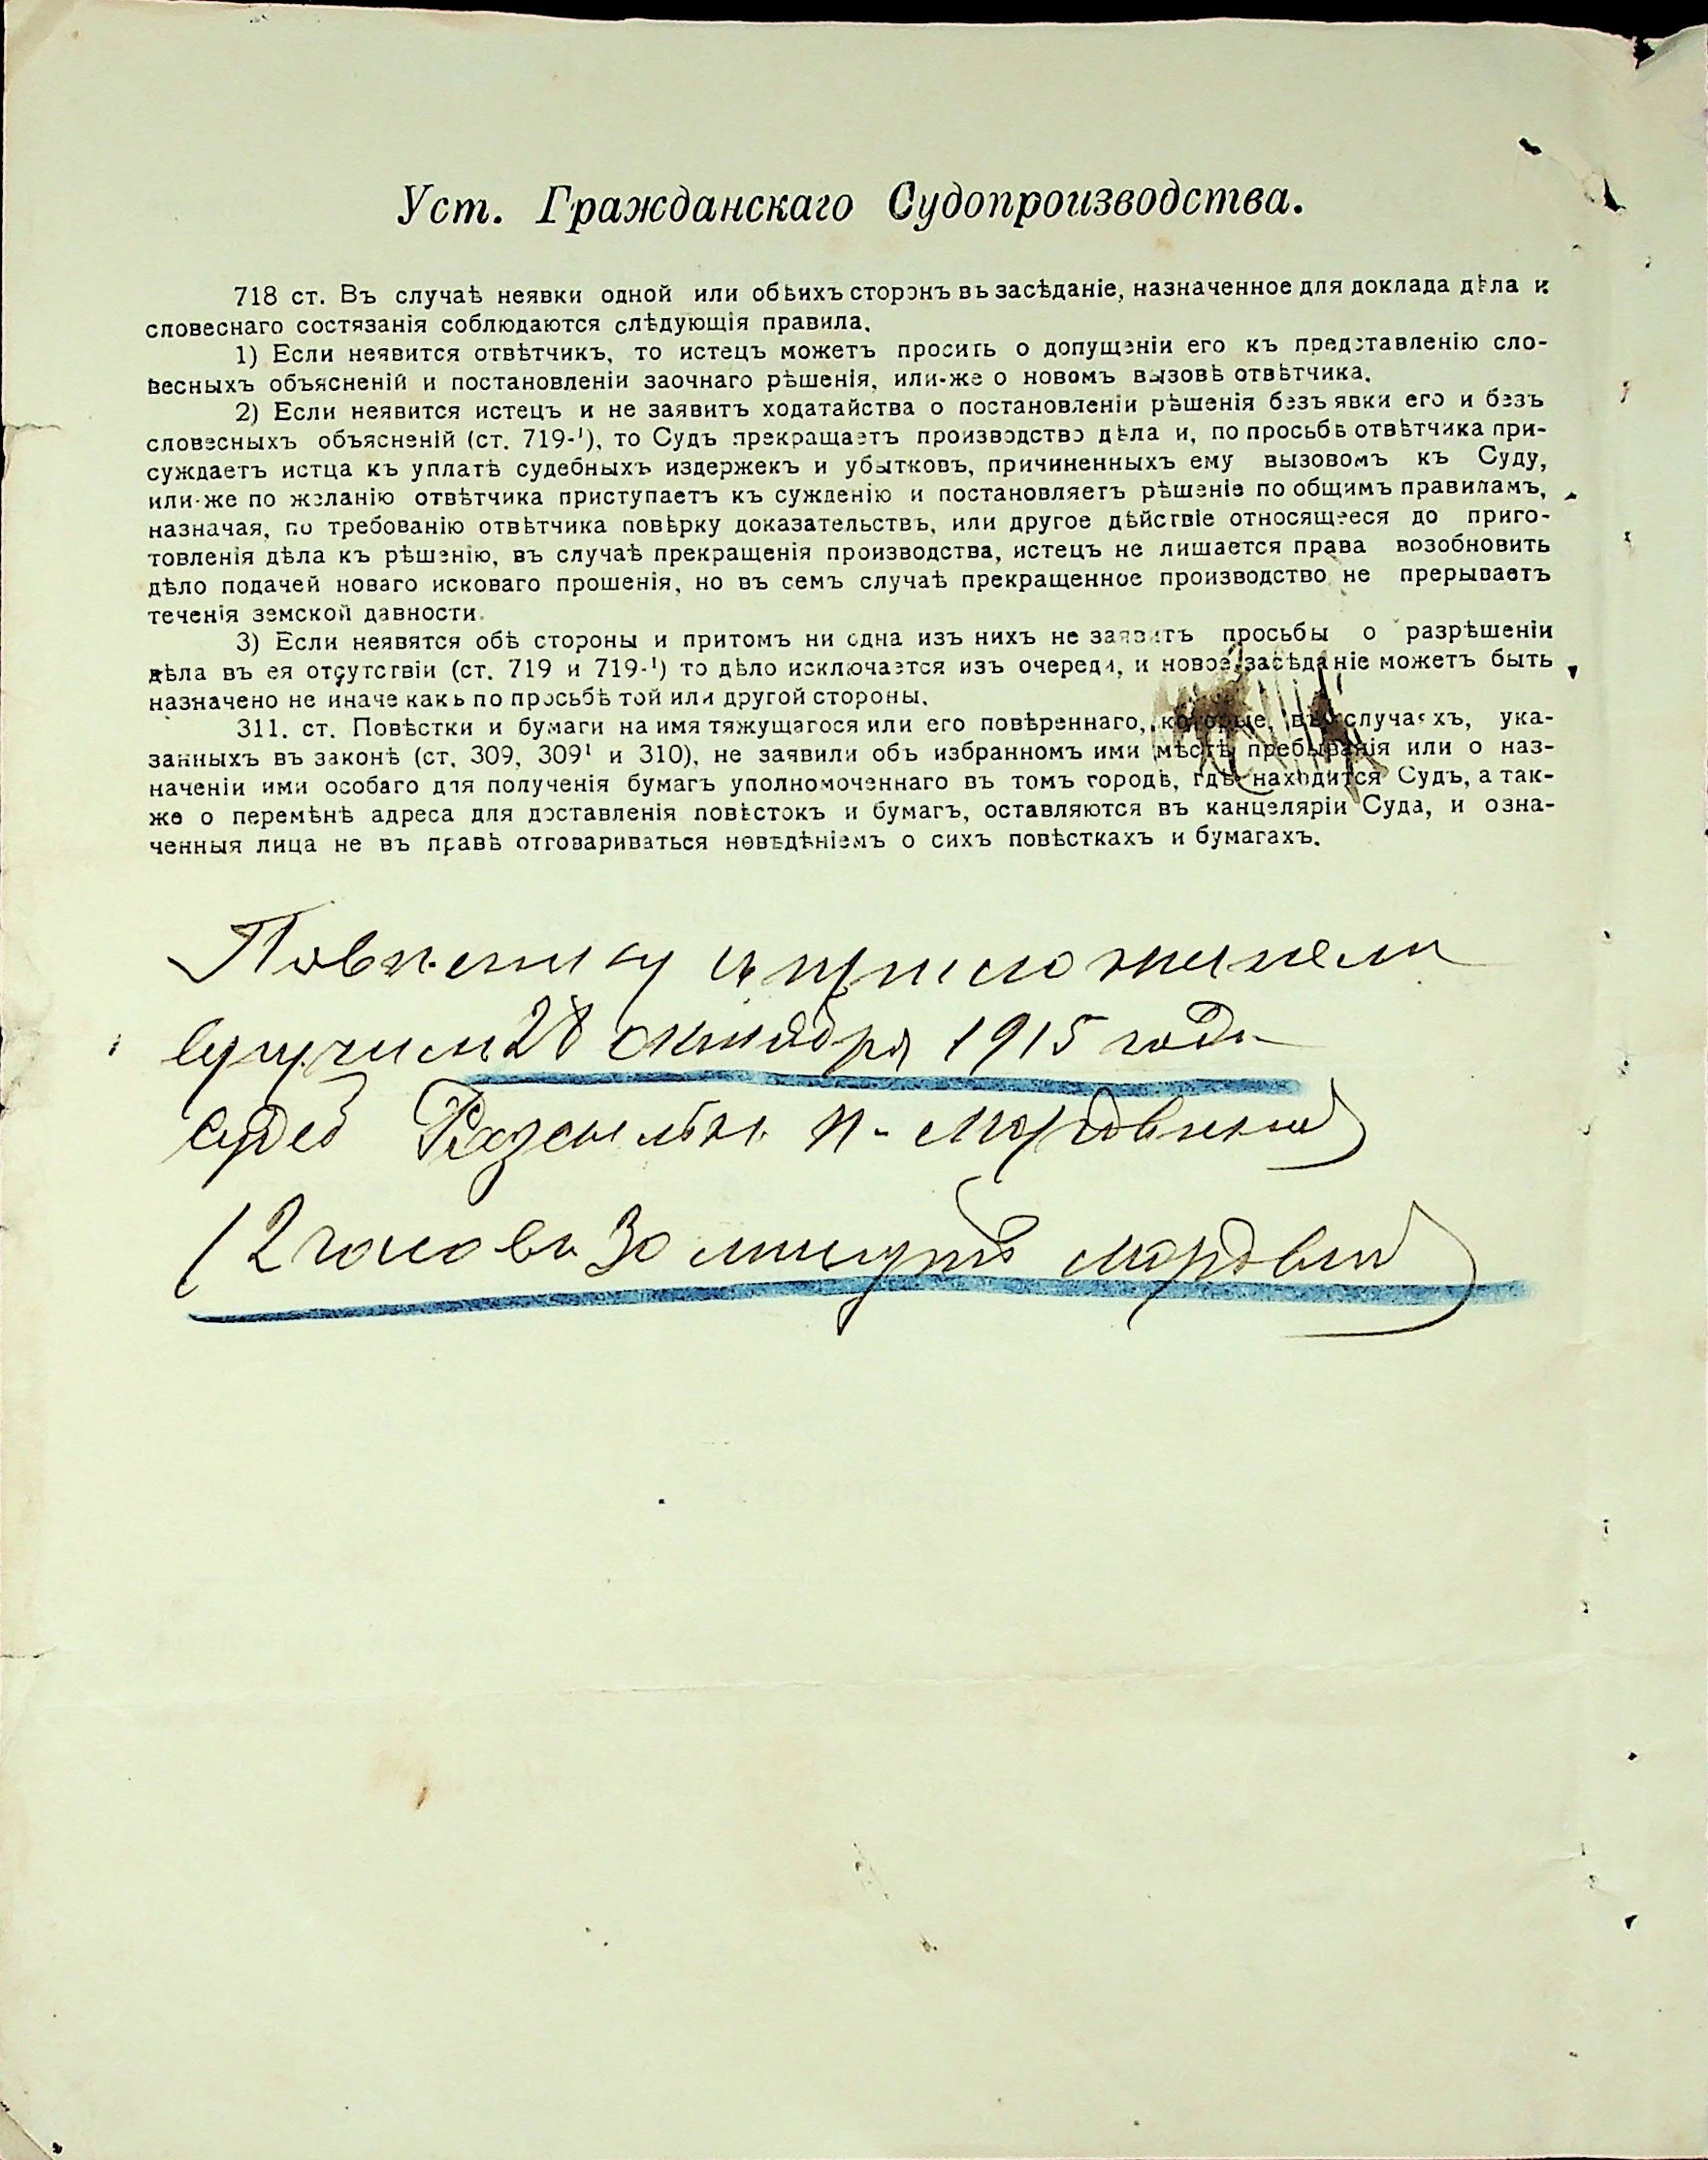 Уст. Гражданскаго Судопроизводства.
718 ст. Въ случаѣ неявки одной или обѣихъ сторонъ въ засѣданіе, назначенное для доклада дѣла и
словеснаго состязанія соблюдаются слѣдующія правила.
1) Если неявится отвѣтчикъ, то истецъ можетъ просить о допущеніи его къ представленію сло-
весныхъ объясненій и постановленіи заочнаго рѣшенія, или-же о новомъ вызовѣ отвѣтчика.
2) Если неявится истецъ и не заявитъ ходатайства о постановленіи рѣшенія безъ явки его и безъ
словесныхъ объясненій (ст. 719-¹), то Судъ прекращаетъ производство дѣла и, по просьбѣ отвѣтчика при-
суждаетъ истца къ уплатѣ судебныхъ издержекъ и убытковъ, причиненныхъ ему вызовомъ къ Суду,
или-же по желанію отвѣтчика приступаетъ къ сужденію и постановляетъ рѣшеніе по общимъ правиламъ,
назначая, по требованію отвѣтчика повѣрку доказательствъ, или другое дѣйствіе относящееся до приго-
товленія дѣла къ рѣшенію, въ случаѣ прекращенія производства, истецъ не лишается права возобновить
дѣло подачей новаго исковаго прошенія, но въ семъ случаѣ прекращенное производство не прерываетъ
теченія земской давности.
3) Если неявятся обѣ стороны и притомъ ни одна изъ нихъ не заявитъ просьбы о разрѣшеніи
дѣла въ ея отсутствіи (ст. 719 и 719-¹) то дѣло исключается изъ очереди, и новое засѣданіе можетъ быть
назначено не иначе какъ по просьбѣ той или другой стороны.
311. ст. Повѣстки и бумаги на имя тяжущагося или его повѣреннаго, которые, въ случаяхъ, ука-
занныхъ въ законѣ (ст. 309, 309¹ и 310), не заявили объ избранномъ ими мѣстѣ пребыванія или о наз-
наченіи ими особаго для полученія бумагъ уполномоченнаго въ томъ городѣ, гдѣ находится Судъ, а так-
же о перемѣнѣ адреса для доставленія повѣстокъ и бумагъ, оставляются въ канцеляріи Суда, и озна-
ченныя лица не въ правѣ отговариваться невѣдѣніемъ о сихъ повѣсткахъ и бумагахъ.
Повестку с приложением
вручил 28 октября 1915 года
судеб Разсыльн. Н. Мордвинов
12 часов 30 минут Мордвин